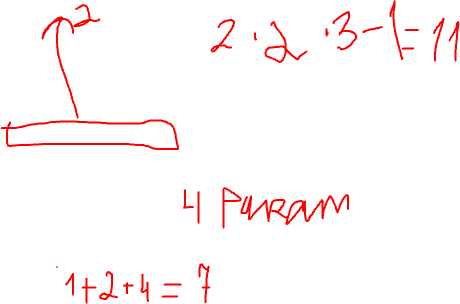 2
2 · 2 · 3 - 1 = 11
4 Param
1 + 2 + 4 = 7